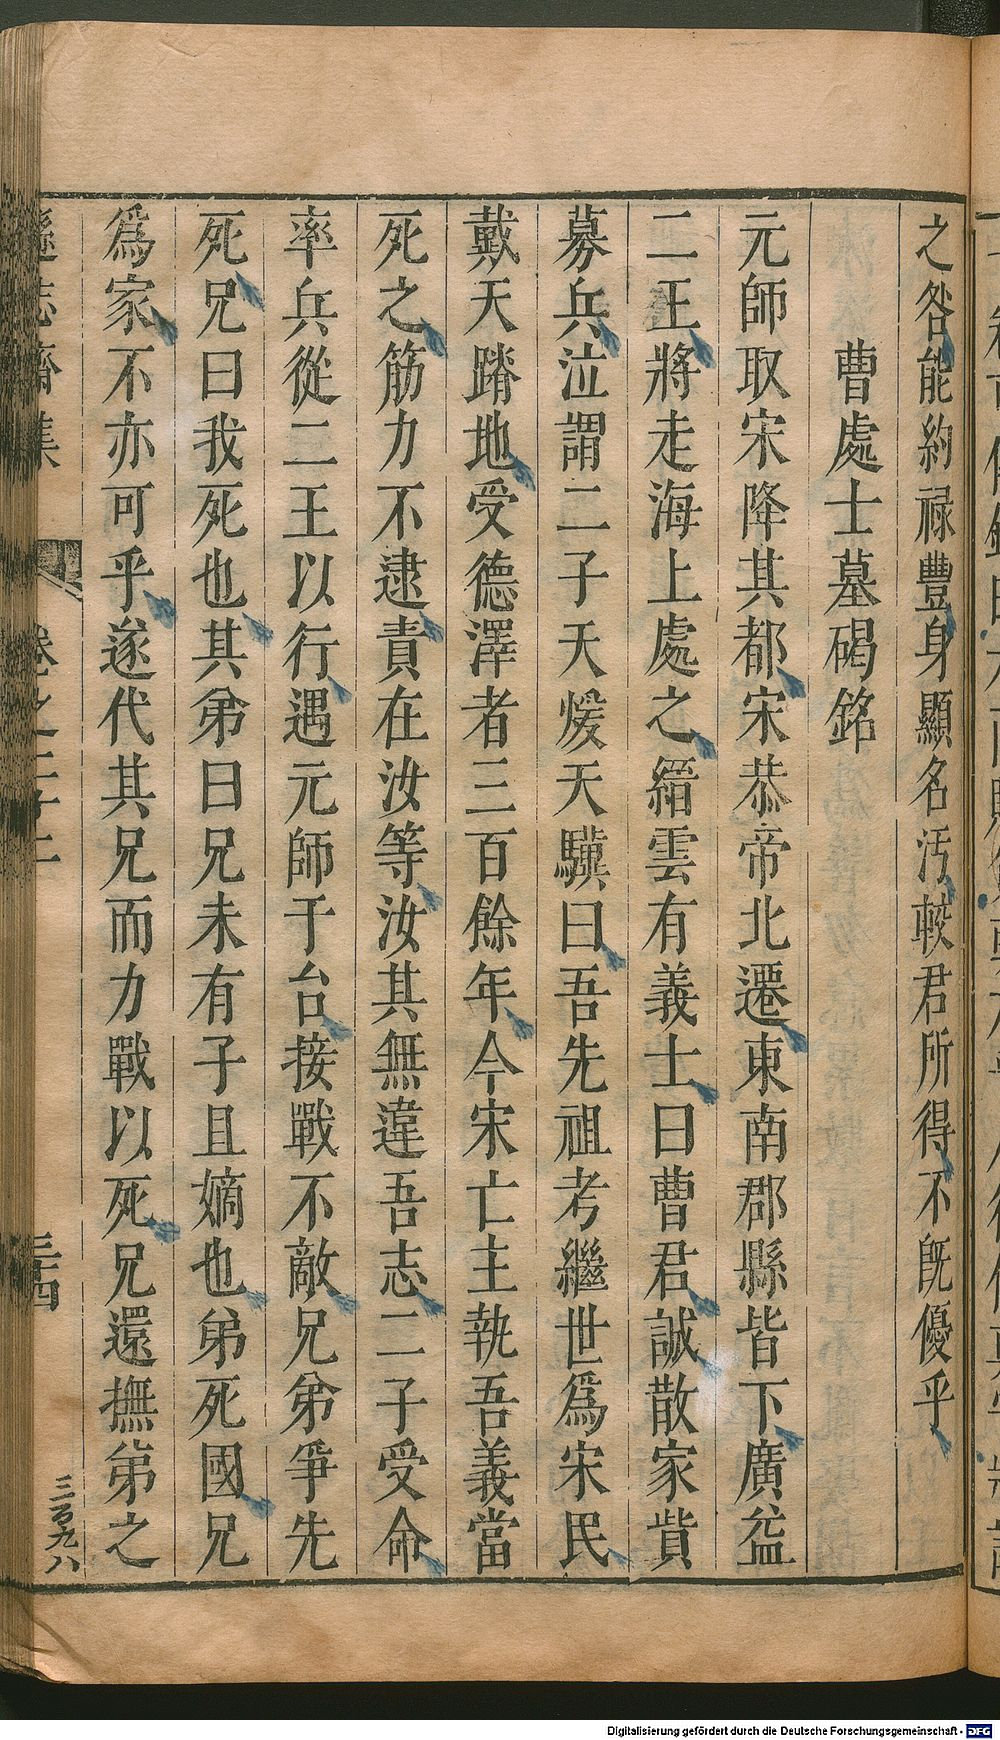 之咎能約祿豐身顯名污較君所得不既優乎
曹處士墓碣銘
元師取宋降其都宋恭帝北遷東南郡縣皆下廣益
二王將走海上處之縉雲有義士曰曹君誠散家貲
募兵泣謂二子天煖天驥曰吾先祖考繼世爲宋民
戴天蹐地受德澤者三百餘年今宋亡主執吾義當
死之筋力不逮責在汝等汝其無違吾志二子受命
率兵從二王以行遇元師于台接戰不敵兄弟爭先
死兄曰我死也其弟曰兄未有子且嫡也弟死國兄
爲家不亦可乎遂代其兄而力戰以死兄還撫弟之
遜志齋集
卷之二十二
三十四
三百九八
Digitalisierung gefördert durch die Deutsche Forschungsgemeinschaft - DFG